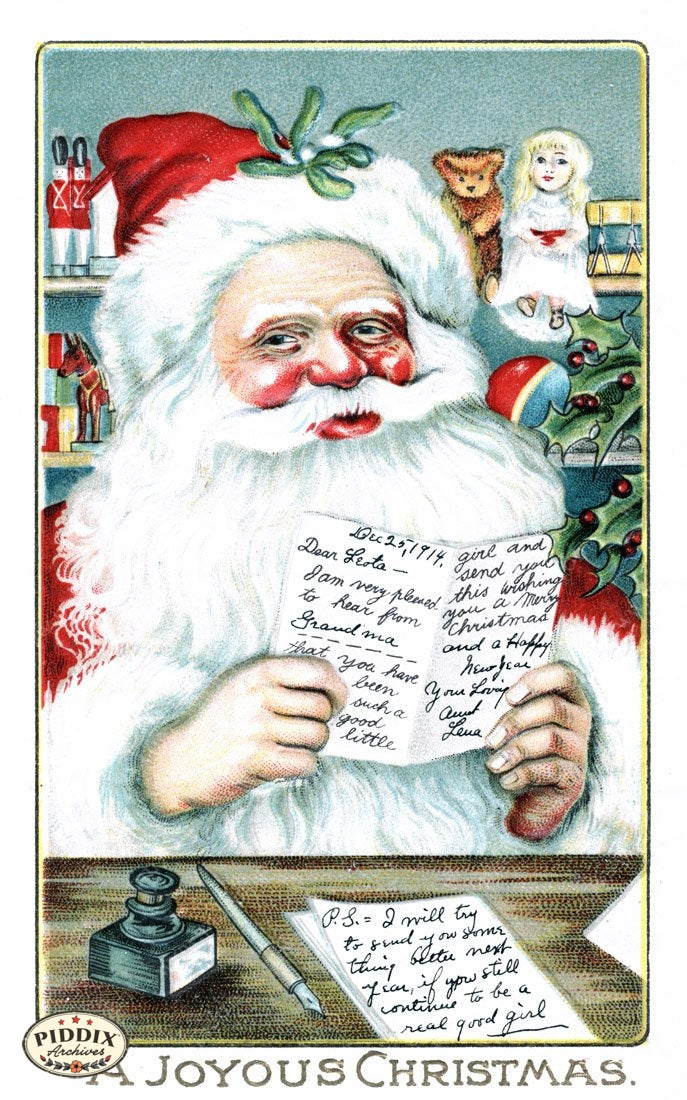 Dec 25, 1914.
Dear Leota —
I am very pleased
to hear from
Grandma
that you have
been
such a
good
little
girl and
send you
this wishing
you a Merry
Christmas
and a Happy
New Year
Your Loving
Aunt
Lena
P.S. = I will try
to send you some
thing better next
year, if you still
continue to be a
real good girl
PIDDIX
Archives
A JOYOUS CHRISTMAS.